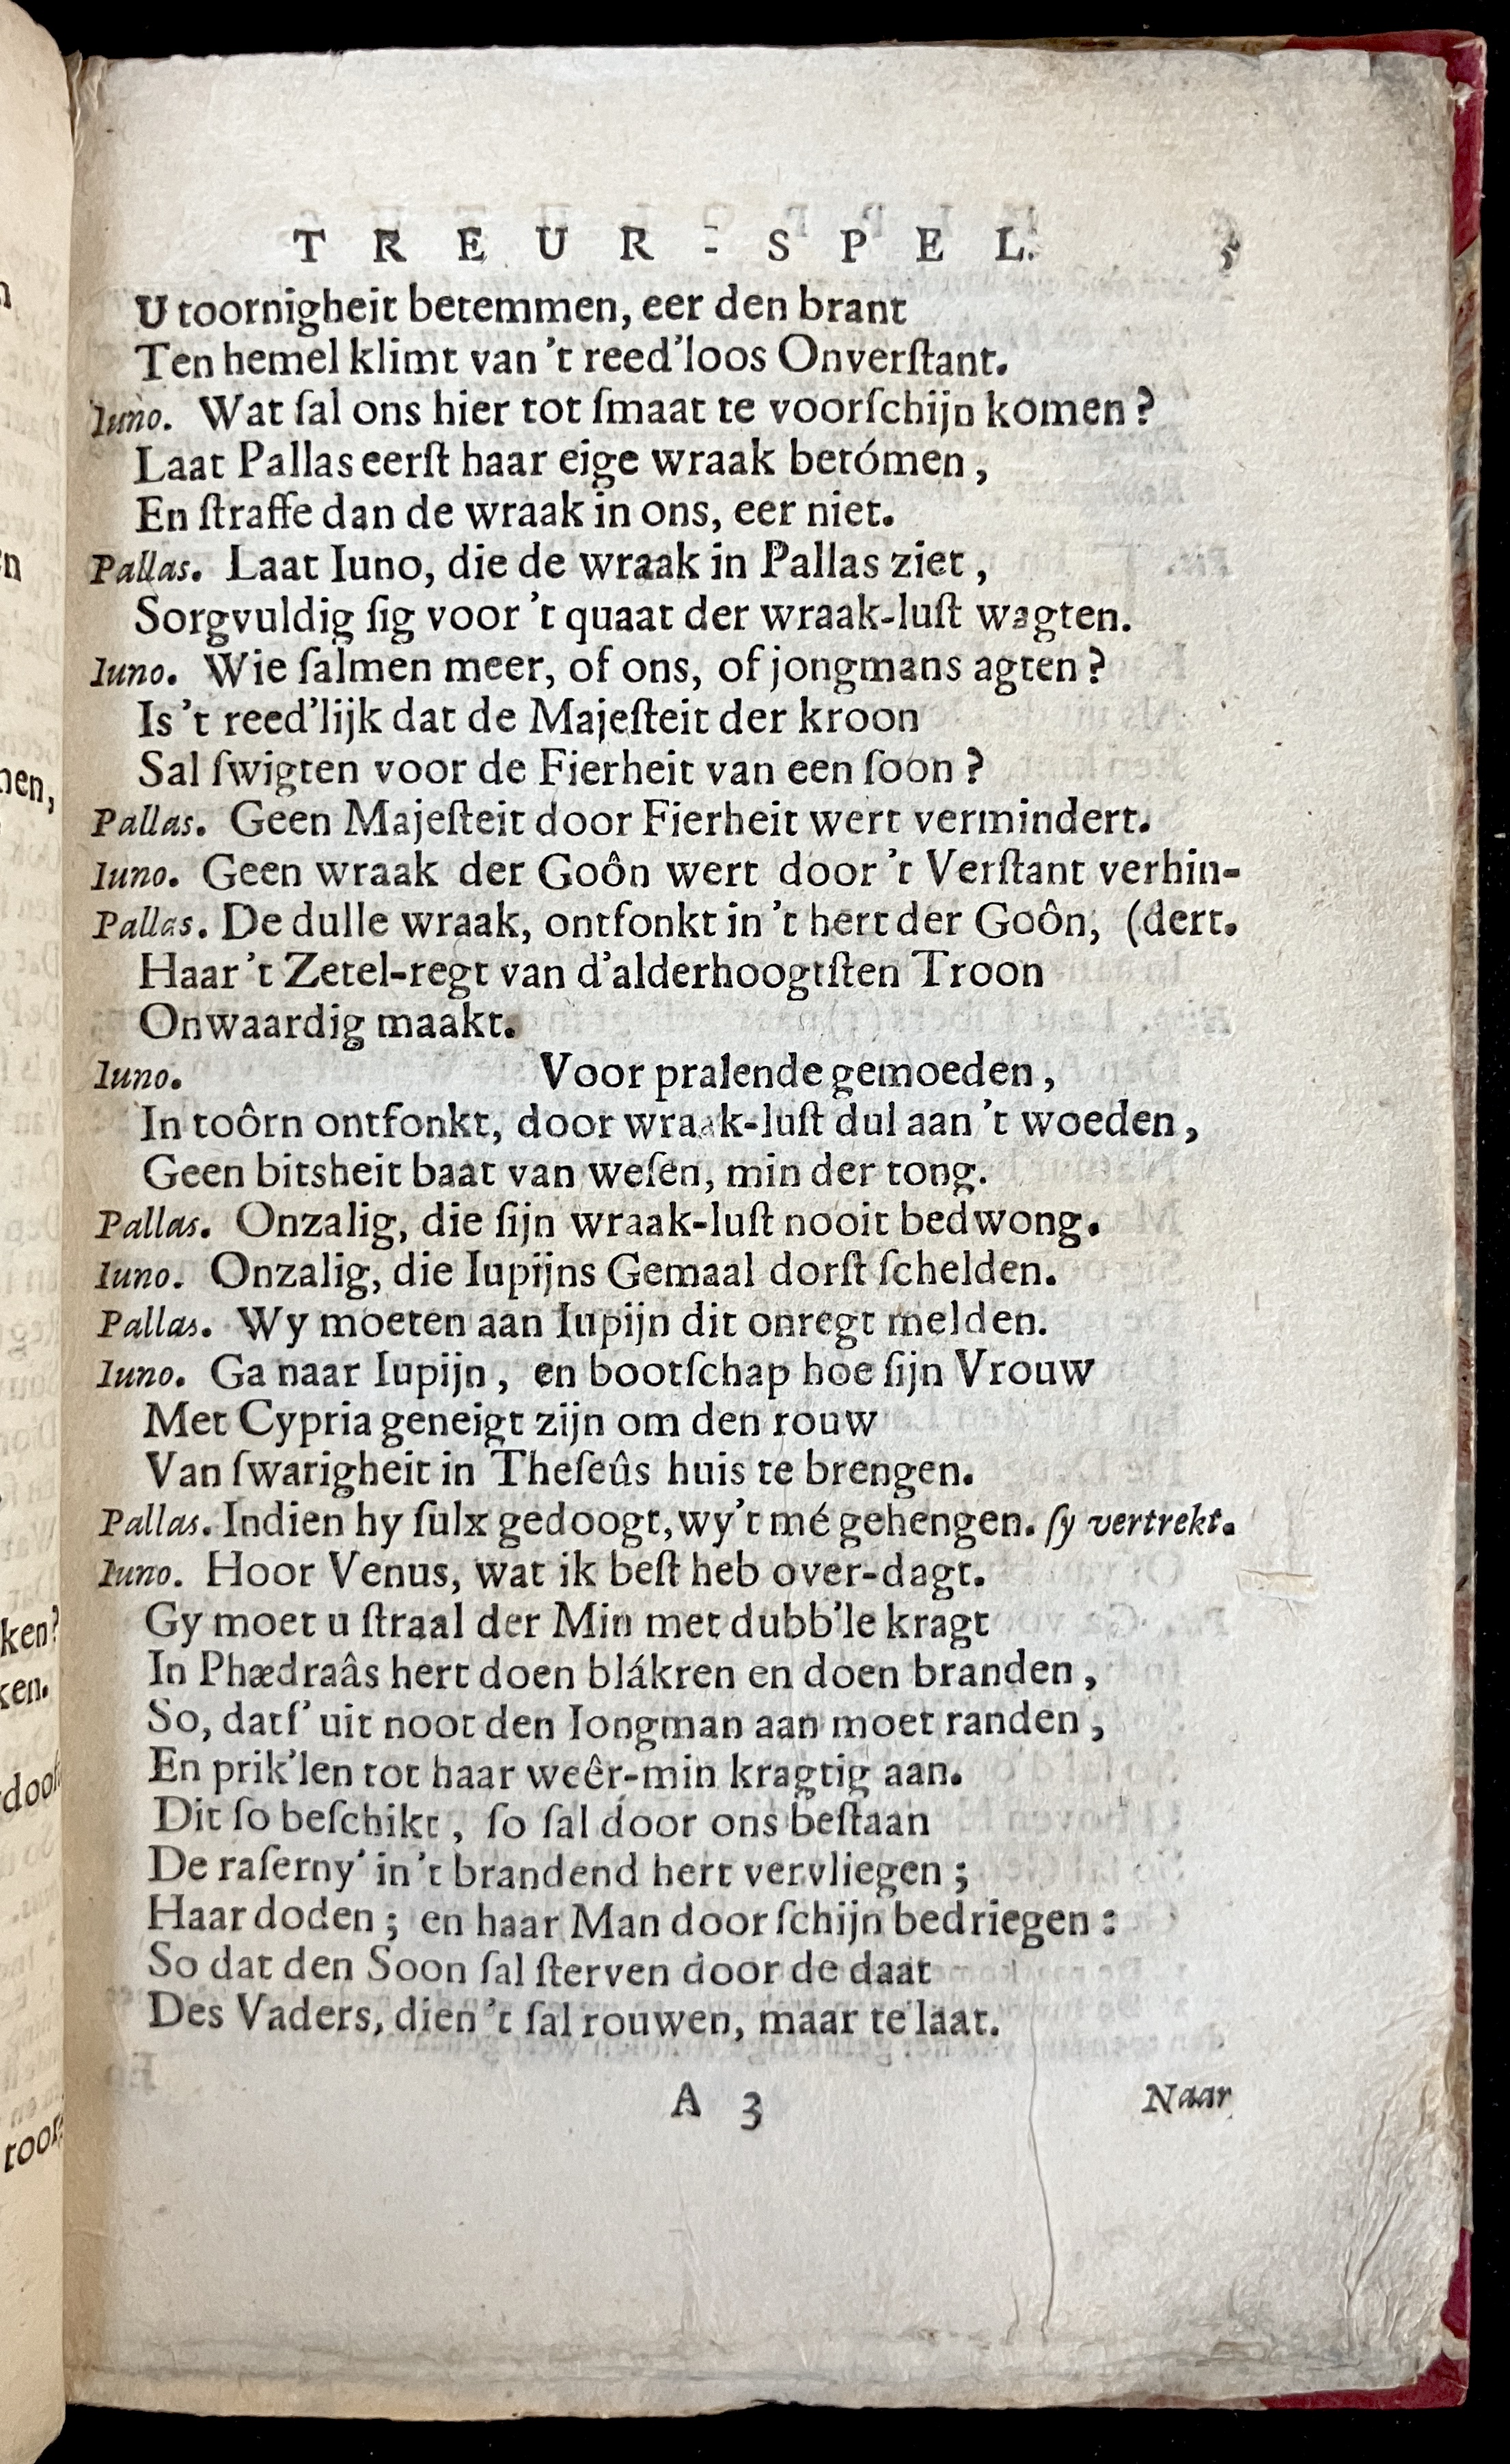 TREUR-SPEL. 5
U toornigheit betemmen, eer den brant
Ten hemel klimt van 't reed'loos Onverſtant.
Iuno. Wat ſal ons hier tot ſmaat te voorſchijn komen?
Laat Pallas eerſt haar eige wraak betómen,
En ſtraffe dan de wraak in ons, eer niet.
Pallas. Laat Iuno, die de wraak in Pallas ziet,
Sorgvuldig ſig voor 't quaat der wraak-luſt wagten.
Iuno. Wie ſalmen meer, of ons, of jongmans agten?
Is 't reed'lijk dat de Majeſteit der kroon
Sal ſwigten voor de Fierheit van een ſoon?
Pallas. Geen Majeſteit door Fierheit wert vermindert.
Iuno. Geen wraak der Goôn wert door 't Verſtant verhin-
Pallas. De dulle wraak, ontfonkt in 't hert der Goôn, (dert.
Haar 't Zetel-regt van d'alderhoogtſten Troon
Onwaardig maakt.
Iuno. Voor pralende gemoeden,
In toôrn ontfonkt, door wraak-luſt dul aan 't woeden,
Geen bitsheit baat van weſen, min der tong.
Pallas. Onzalig, die ſijn wraak-luſt nooit bedwong.
Iuno. Onzalig, die Iupijns Gemaal dorſt ſchelden.
Pallas. Wy moeten aan Iupijn dit onregt melden.
Iuno. Ga naar Iupijn, en bootſchap hoe ſijn Vrouw
Met Cypria geneigt zijn om den rouw
Van ſwarigheit in Theſeûs huis te brengen.
Pallas. Indien hy ſulx gedoogt, wy't mé gehengen. ſy vertrekt.
Iuno. Hoor Venus, wat ik beſt heb over-dagt.
Gy moet u ſtraal der Min met dubb'le kragt
In Phædraâs hert doen blákren en doen branden,
So, datſ' uit noot den Iongman aan moet randen,
En prik'len tot haar weêr-min kragtig aan.
Dit ſo beſchikt, ſo ſal door ons beſtaan
De raſerny' in 't brandend hert vervliegen;
Haar doden; en haar Man door ſchijn bedriegen:
So dat den Soon ſal ſterven door de daat
Des Vaders, dien 't ſal rouwen, maar te laat.
A 3 Naar